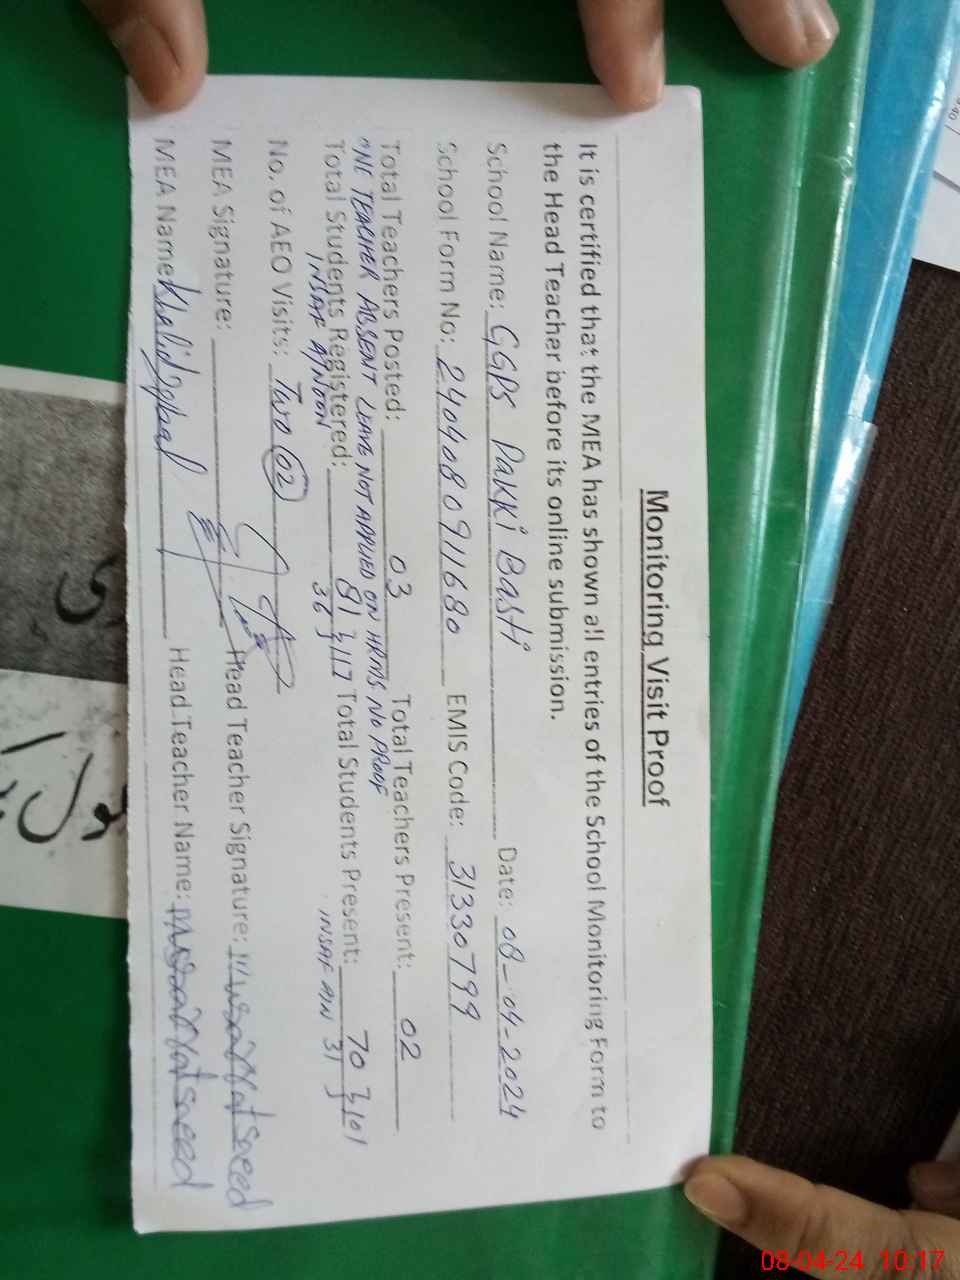 Monitoring Visit Proof
It is certified that the MEA has shown all entries of the School Monitoring Form to
the Head Teacher before its online submission.
School Name: GGPS Pakki Basti Date: 08-04-2024
School Form No: 240408 0911680 EMIS Code: 31330799
Total Teachers Posted: 03 Total Teachers Present: 02
ONE TEACHER ABSENT LEAVE NOT APPLIED ON HRMS. NO PROOF
Total Students Registered: 81 } 117 Total Students Present: 70 } 101
INSAF A/NOON 36 INSAF A/N 31
No. of AEO Visits: Two 02
MEA Signature: Head Teacher Signature: Musarrat saeed
MEA Name: Khalid Iqbal Head Teacher Name: Musarrat saeed
08-04-24 10:17